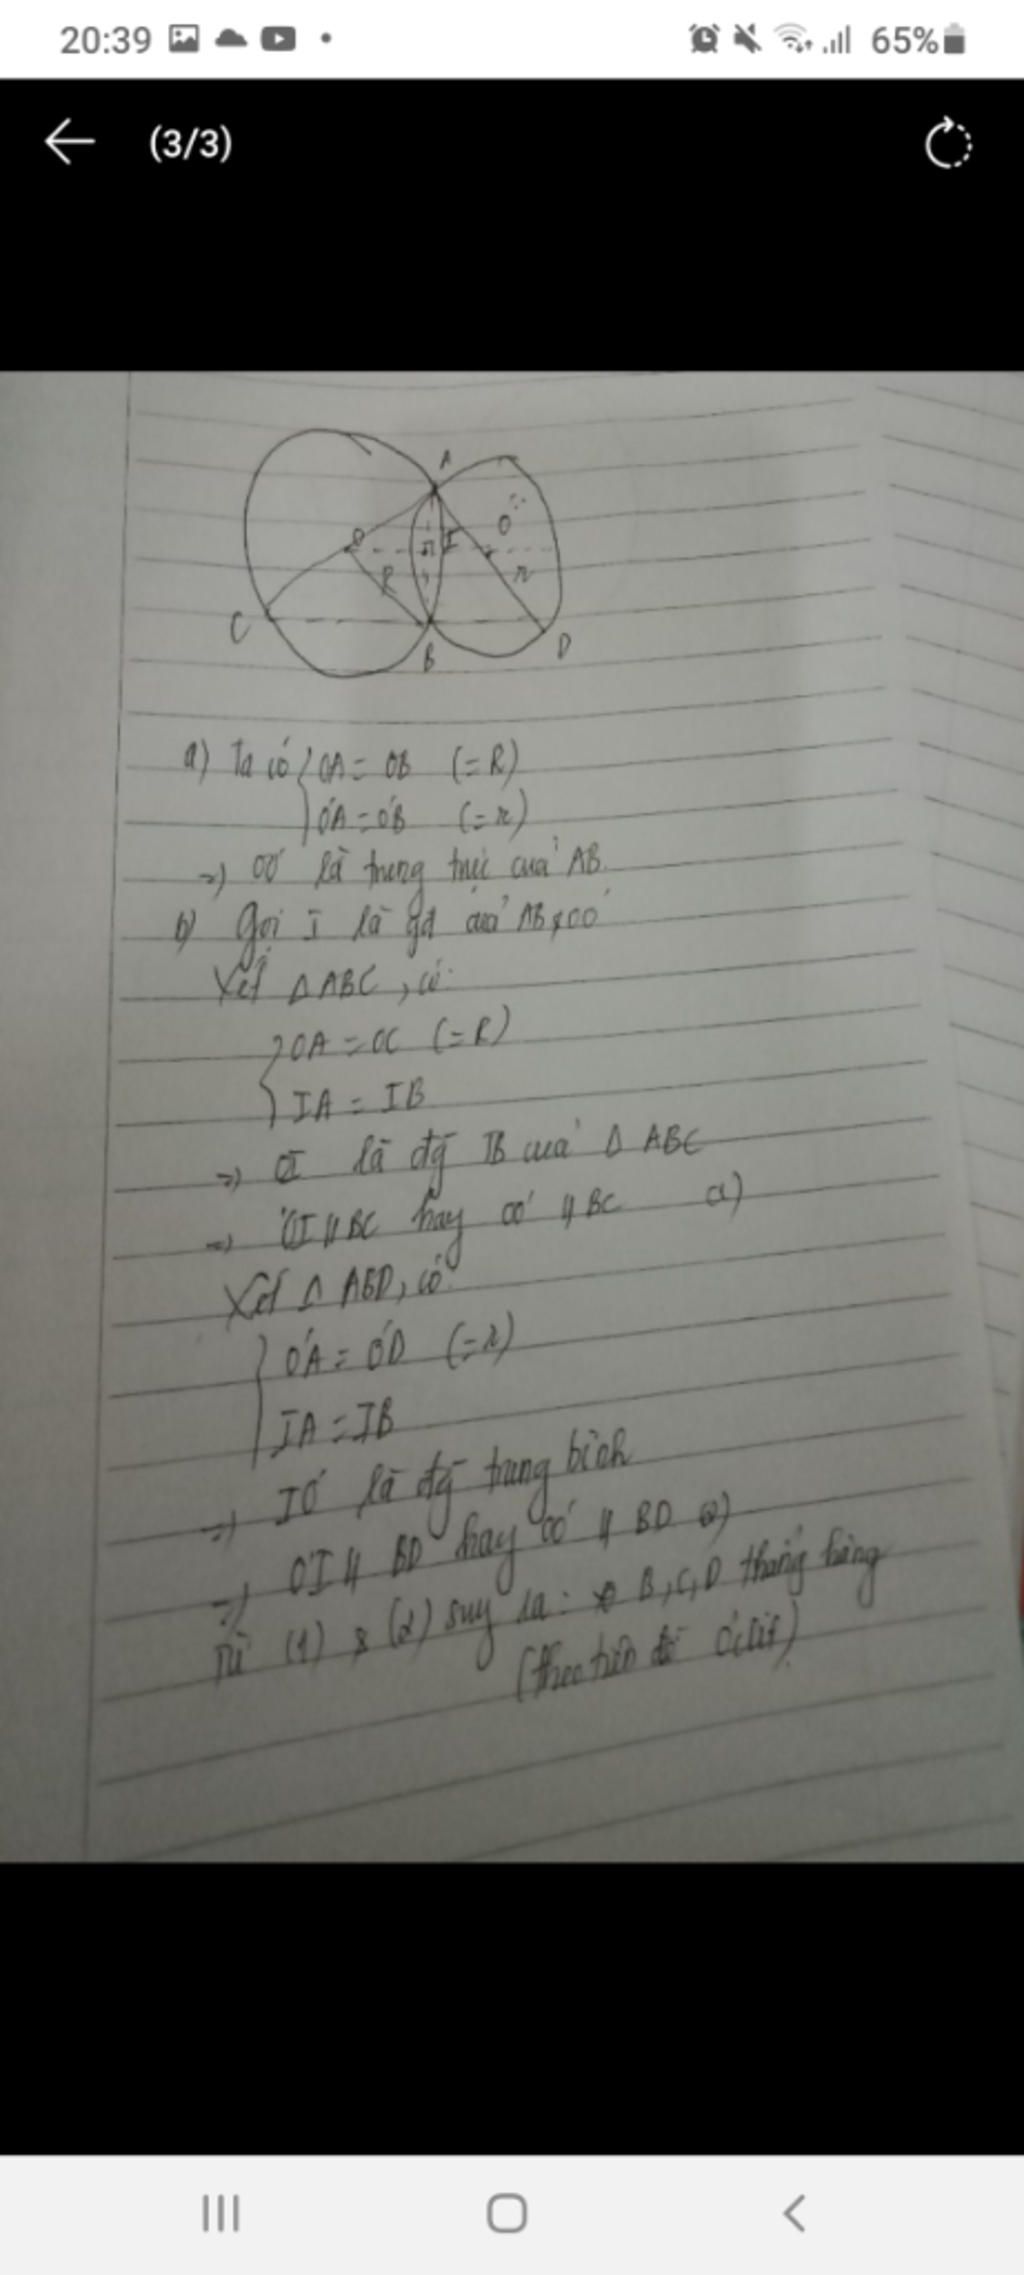 20:39
65%
(3/3)
A
O
I
O'
R
r
C
B
D
a) Ta có { OA = OB (= R)
O'A = O'B (= r)
=> OO' là trung trực của AB.
b) Gọi I là gđ của AB & OO'
Xét Δ ABC, có:
{ OA = OC (= R)
IA = IB
=> OI là đg TB của Δ ABC
=> OI // BC hay OO' // BC (1)
Xét Δ ABD, có:
{ O'A = O'D (= r)
IA = IB
=> IO' là đg trung bình
=> O'I // BD hay OO' // BD (2)
Từ (1) & (2) suy ra: B, C, D thẳng hàng
(theo tiên đề Ơclit)